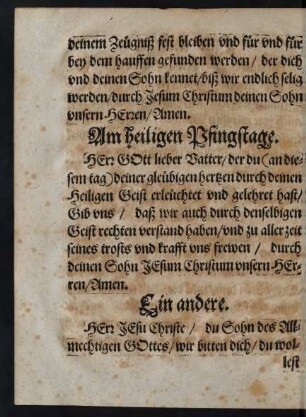 deinem Zeügniß fest bleiben vnd für vnd für
bey dem hauffen gefunden werden / der dich
vnd deinen Sohn kennet/biß wir endlich selig
werden/durch Jesum Christum deinen Sohn
vnsern HErren/Amen.
Am heiligen Pfingstage.
HErr GOtt lieber Vatter/der du (an die-
sem tag) deiner gleübigen hertzen durch deinen
Heiligen Geist erleüchtet vnd gelehret hast/
Gib vns / daß wir auch durch denselbigen
Geist rechten verstand haben/vnd zu aller zeit
seines trosts vnd krafft vns frewen / durch
deinen Sohn JEsum Christum vnsern HEr-
ren/Amen.
Ein andere.
HErr JEsu Christe / du Sohn des All-
mechtigen GOttes/wir bitten dich/du wol-
lest